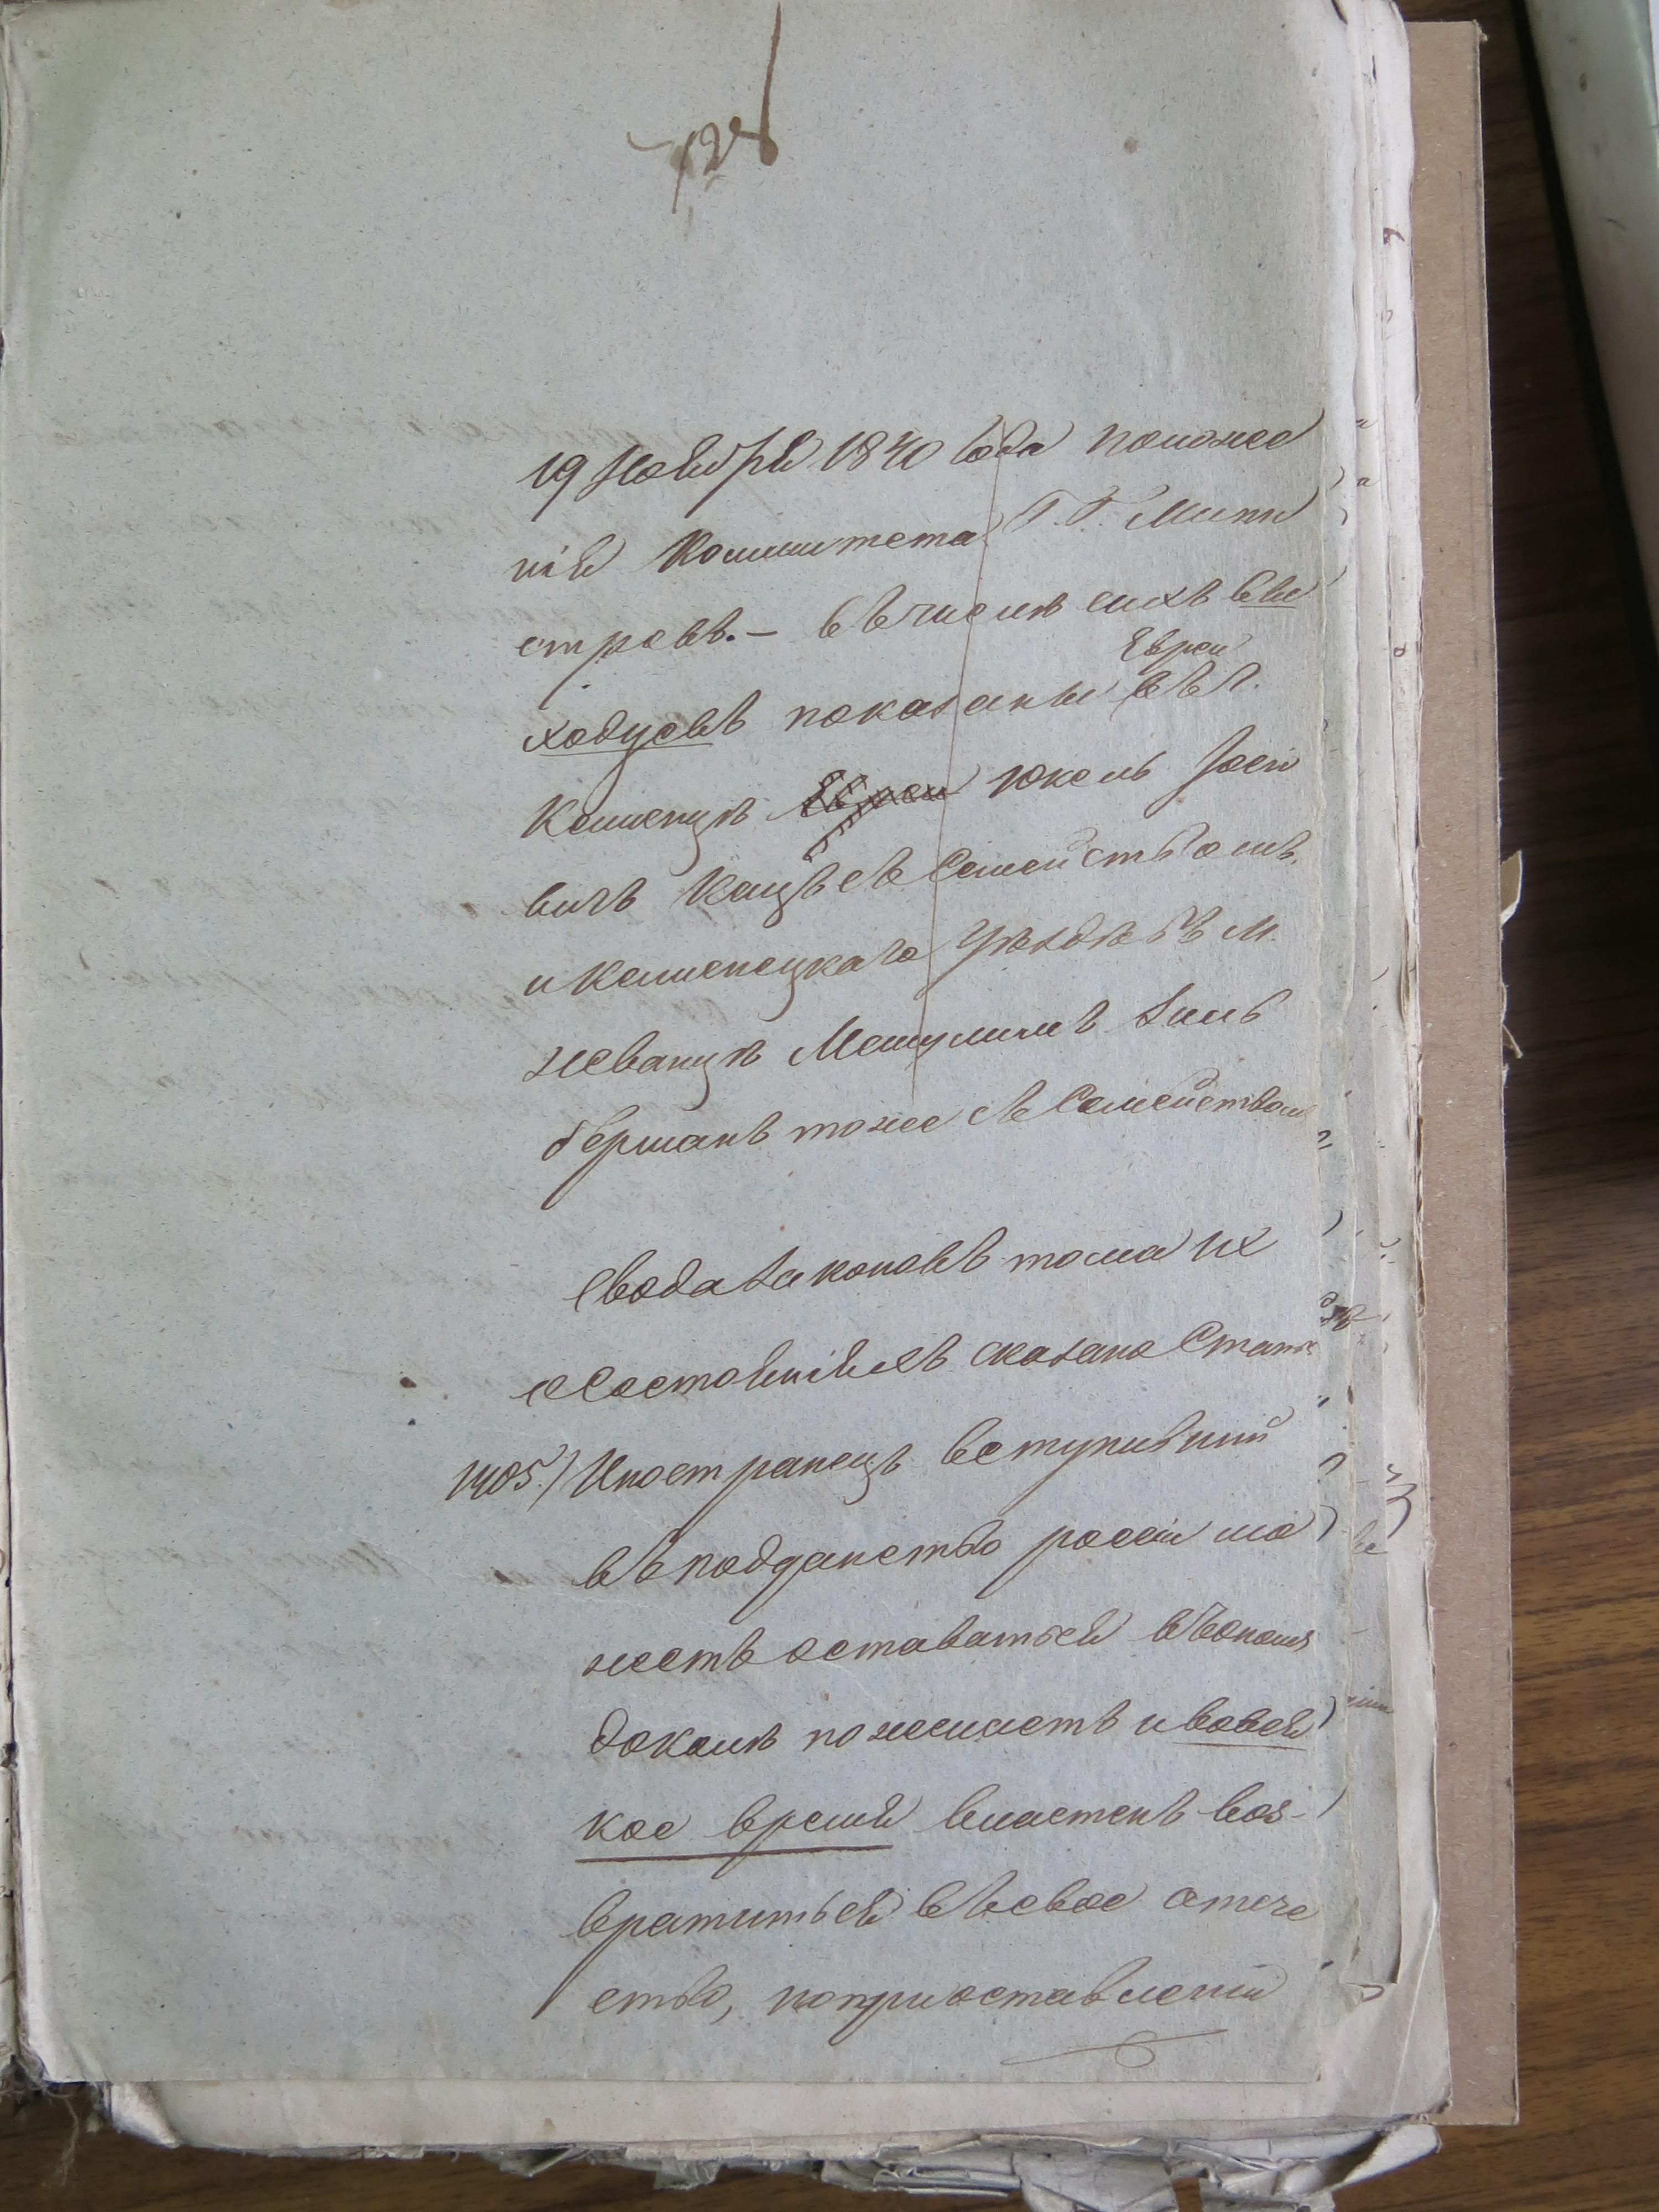 128
19 Ноября 1840 Года положе
нія Коммитета Г.Г. Мини
стровъ. – въ числѣ сихъ Све
Евреи
ходусовъ показаны въ г.
Каменцѣ Юкель Іосі
вичъ Кацъ съ Семействомъ.
и Каменецкаго Уѣзда въ м.
Жванцѣ Мешулимъ Зиль
берманъ тоже съ Семействомъ
Свода Законовъ тома IX
о Состояніяхъ сказано Стать
1405.) Иностранецъ вступившій
въ подданство россіи мо
жетъ оставаться въ ономъ
доколѣ пожелаетъ и во вся
кое время властенъ воз-
вратиться въ свое отече
ство, по приоставленіи